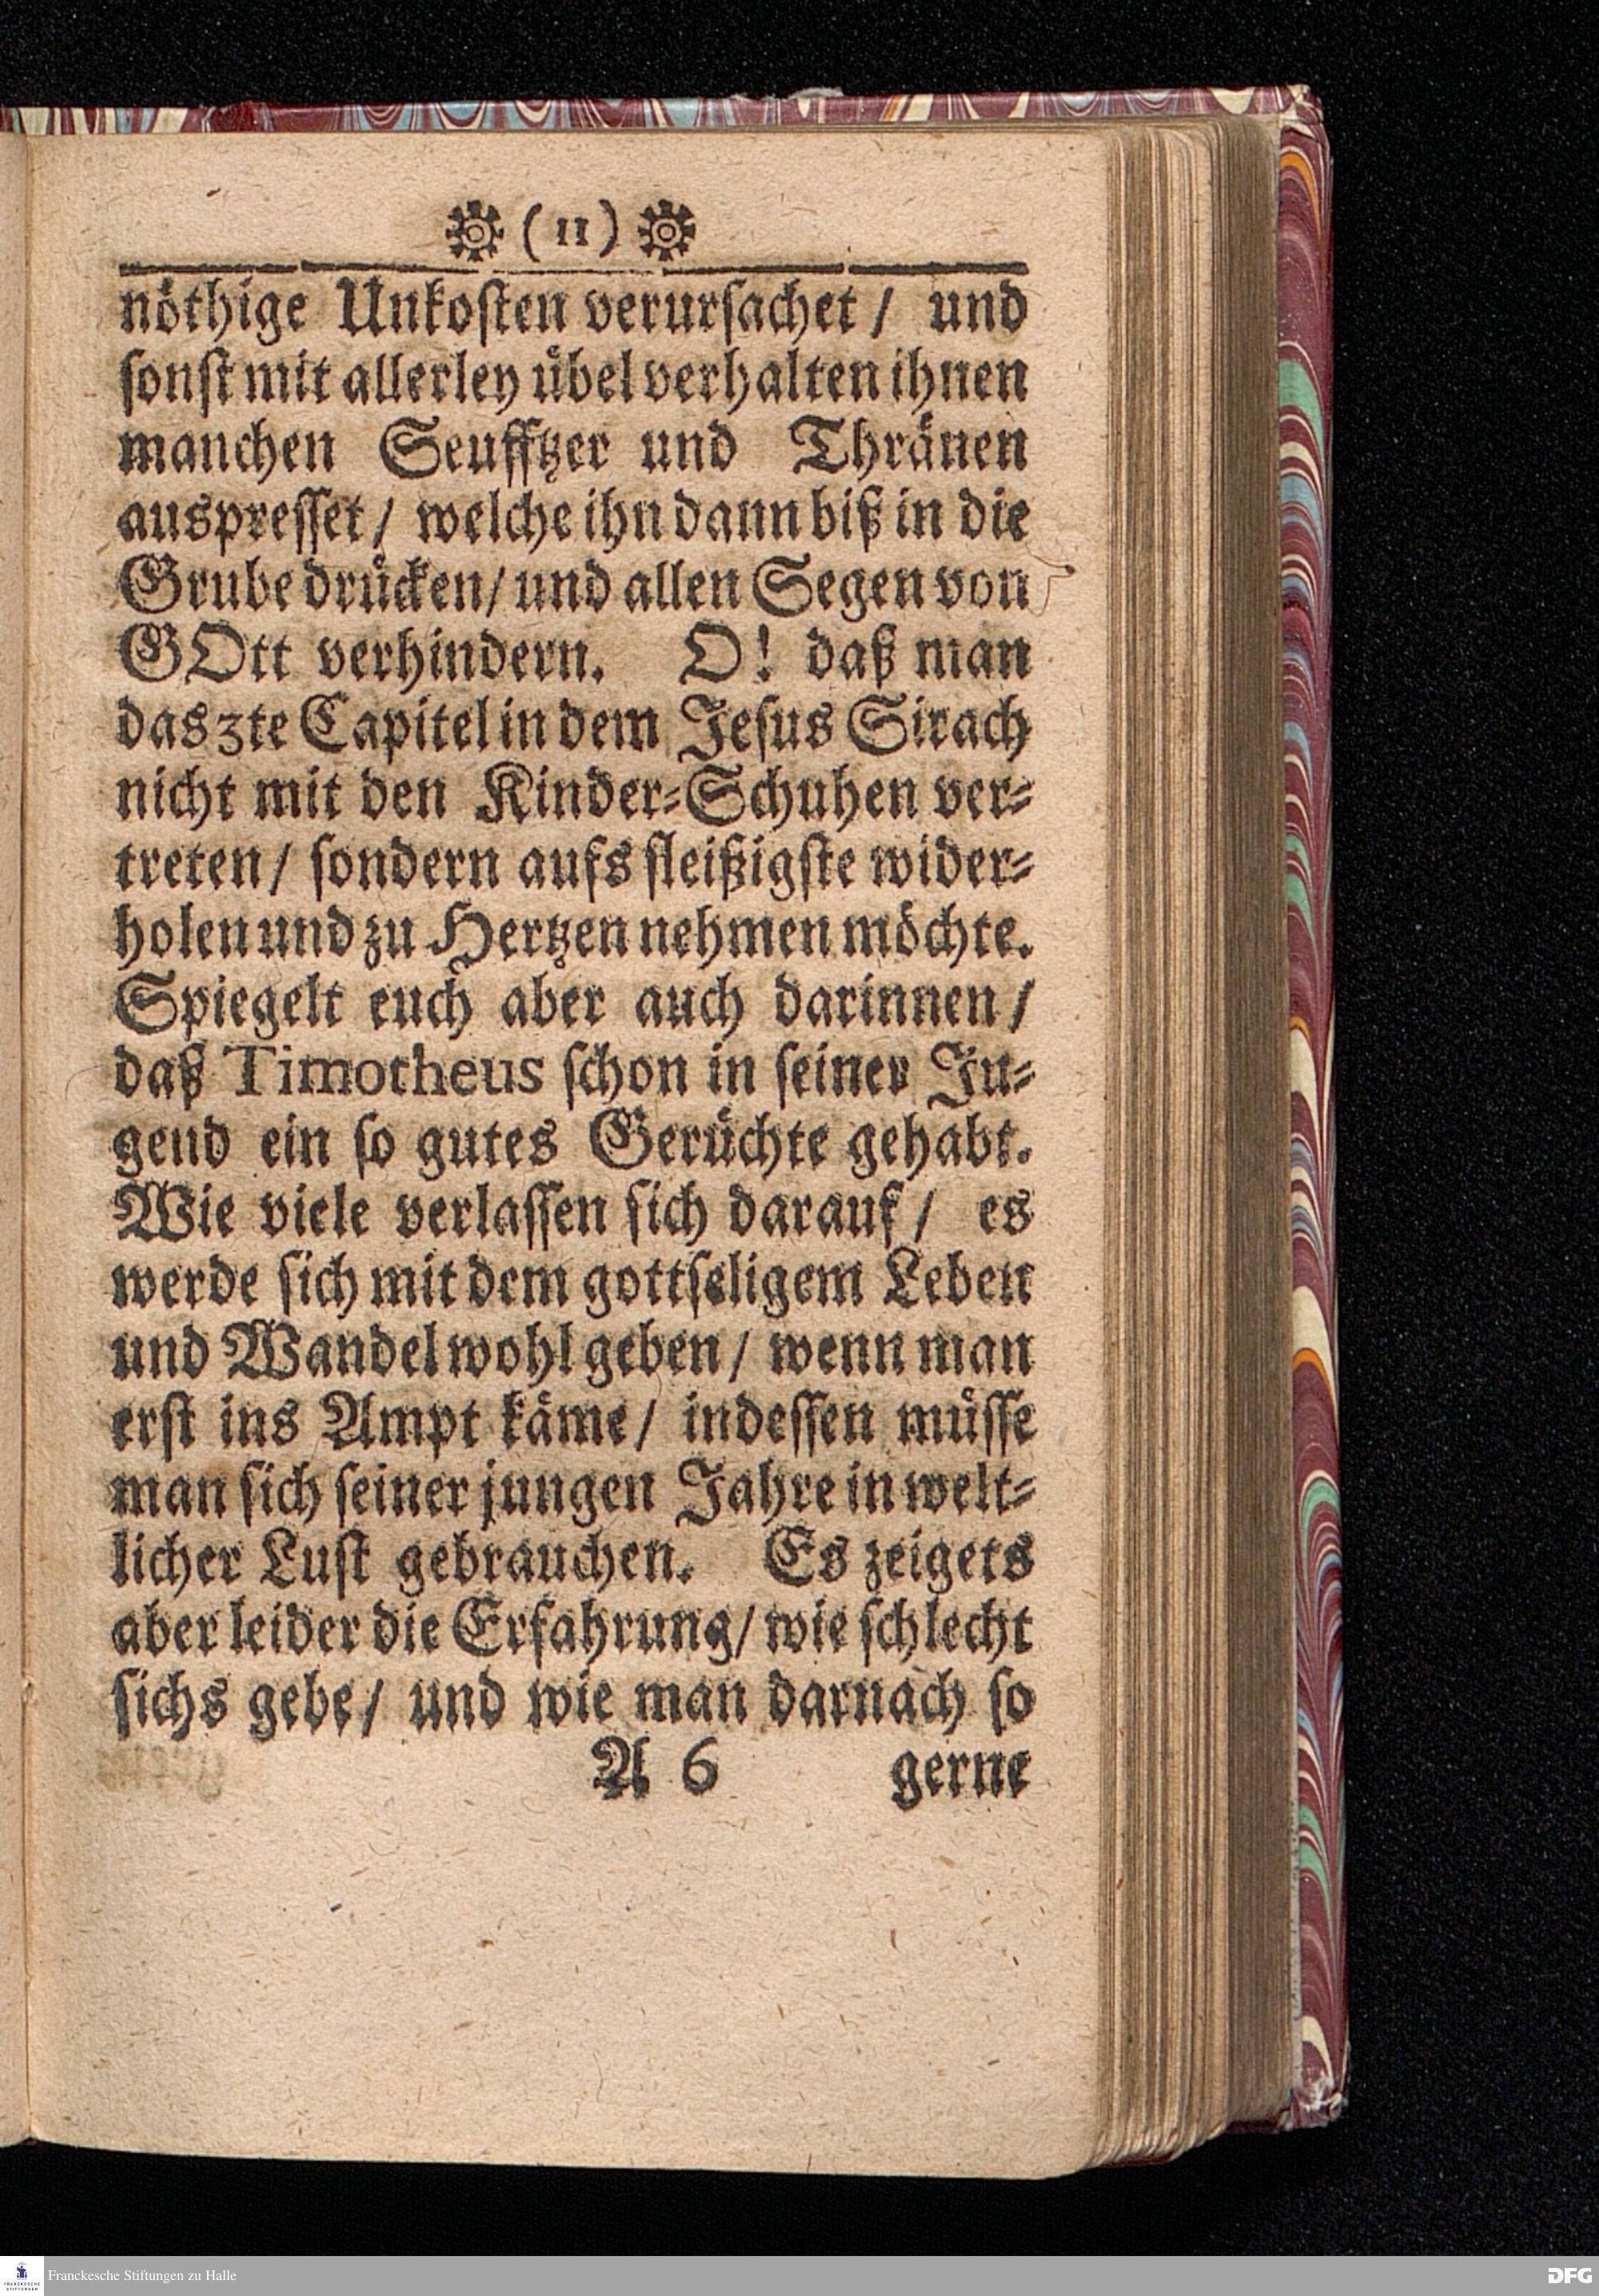 ( 11 )
nöthige Unkosten verursachet / und
sonst mit allerley übel verhalten ihnen
manchen Seufftzer und Thränen
auspresset / welche ihn dann biß in die
Grube drücken / und allen Segen von
GOtt verhindern. O! daß man
das 3te Capitel in dem Jesus Sirach
nicht mit den Kinder-Schuhen ver-
treten / sondern aufs fleißigste wider-
holen und zu Hertzen nehmen möchte.
Spiegelt euch aber auch darinnen /
daß Timotheus schon in seiner Ju-
gend ein so gutes Gerüchte gehabt.
Wie viele verlassen sich darauf / es
werde sich mit dem gottseligem Leben
und Wandel wohl geben / wenn man
erst ins Ampt käme / indessen müsse
man sich seiner jungen Jahre in welt-
licher Lust gebrauchen. Es zeigets
aber leider die Erfahrung / wie schlecht
sichs gebe / und wie man darnach so
A 6 gerne
FRANCKESCHE STIFTUNGEN
Franckesche Stiftungen zu Halle
DFG